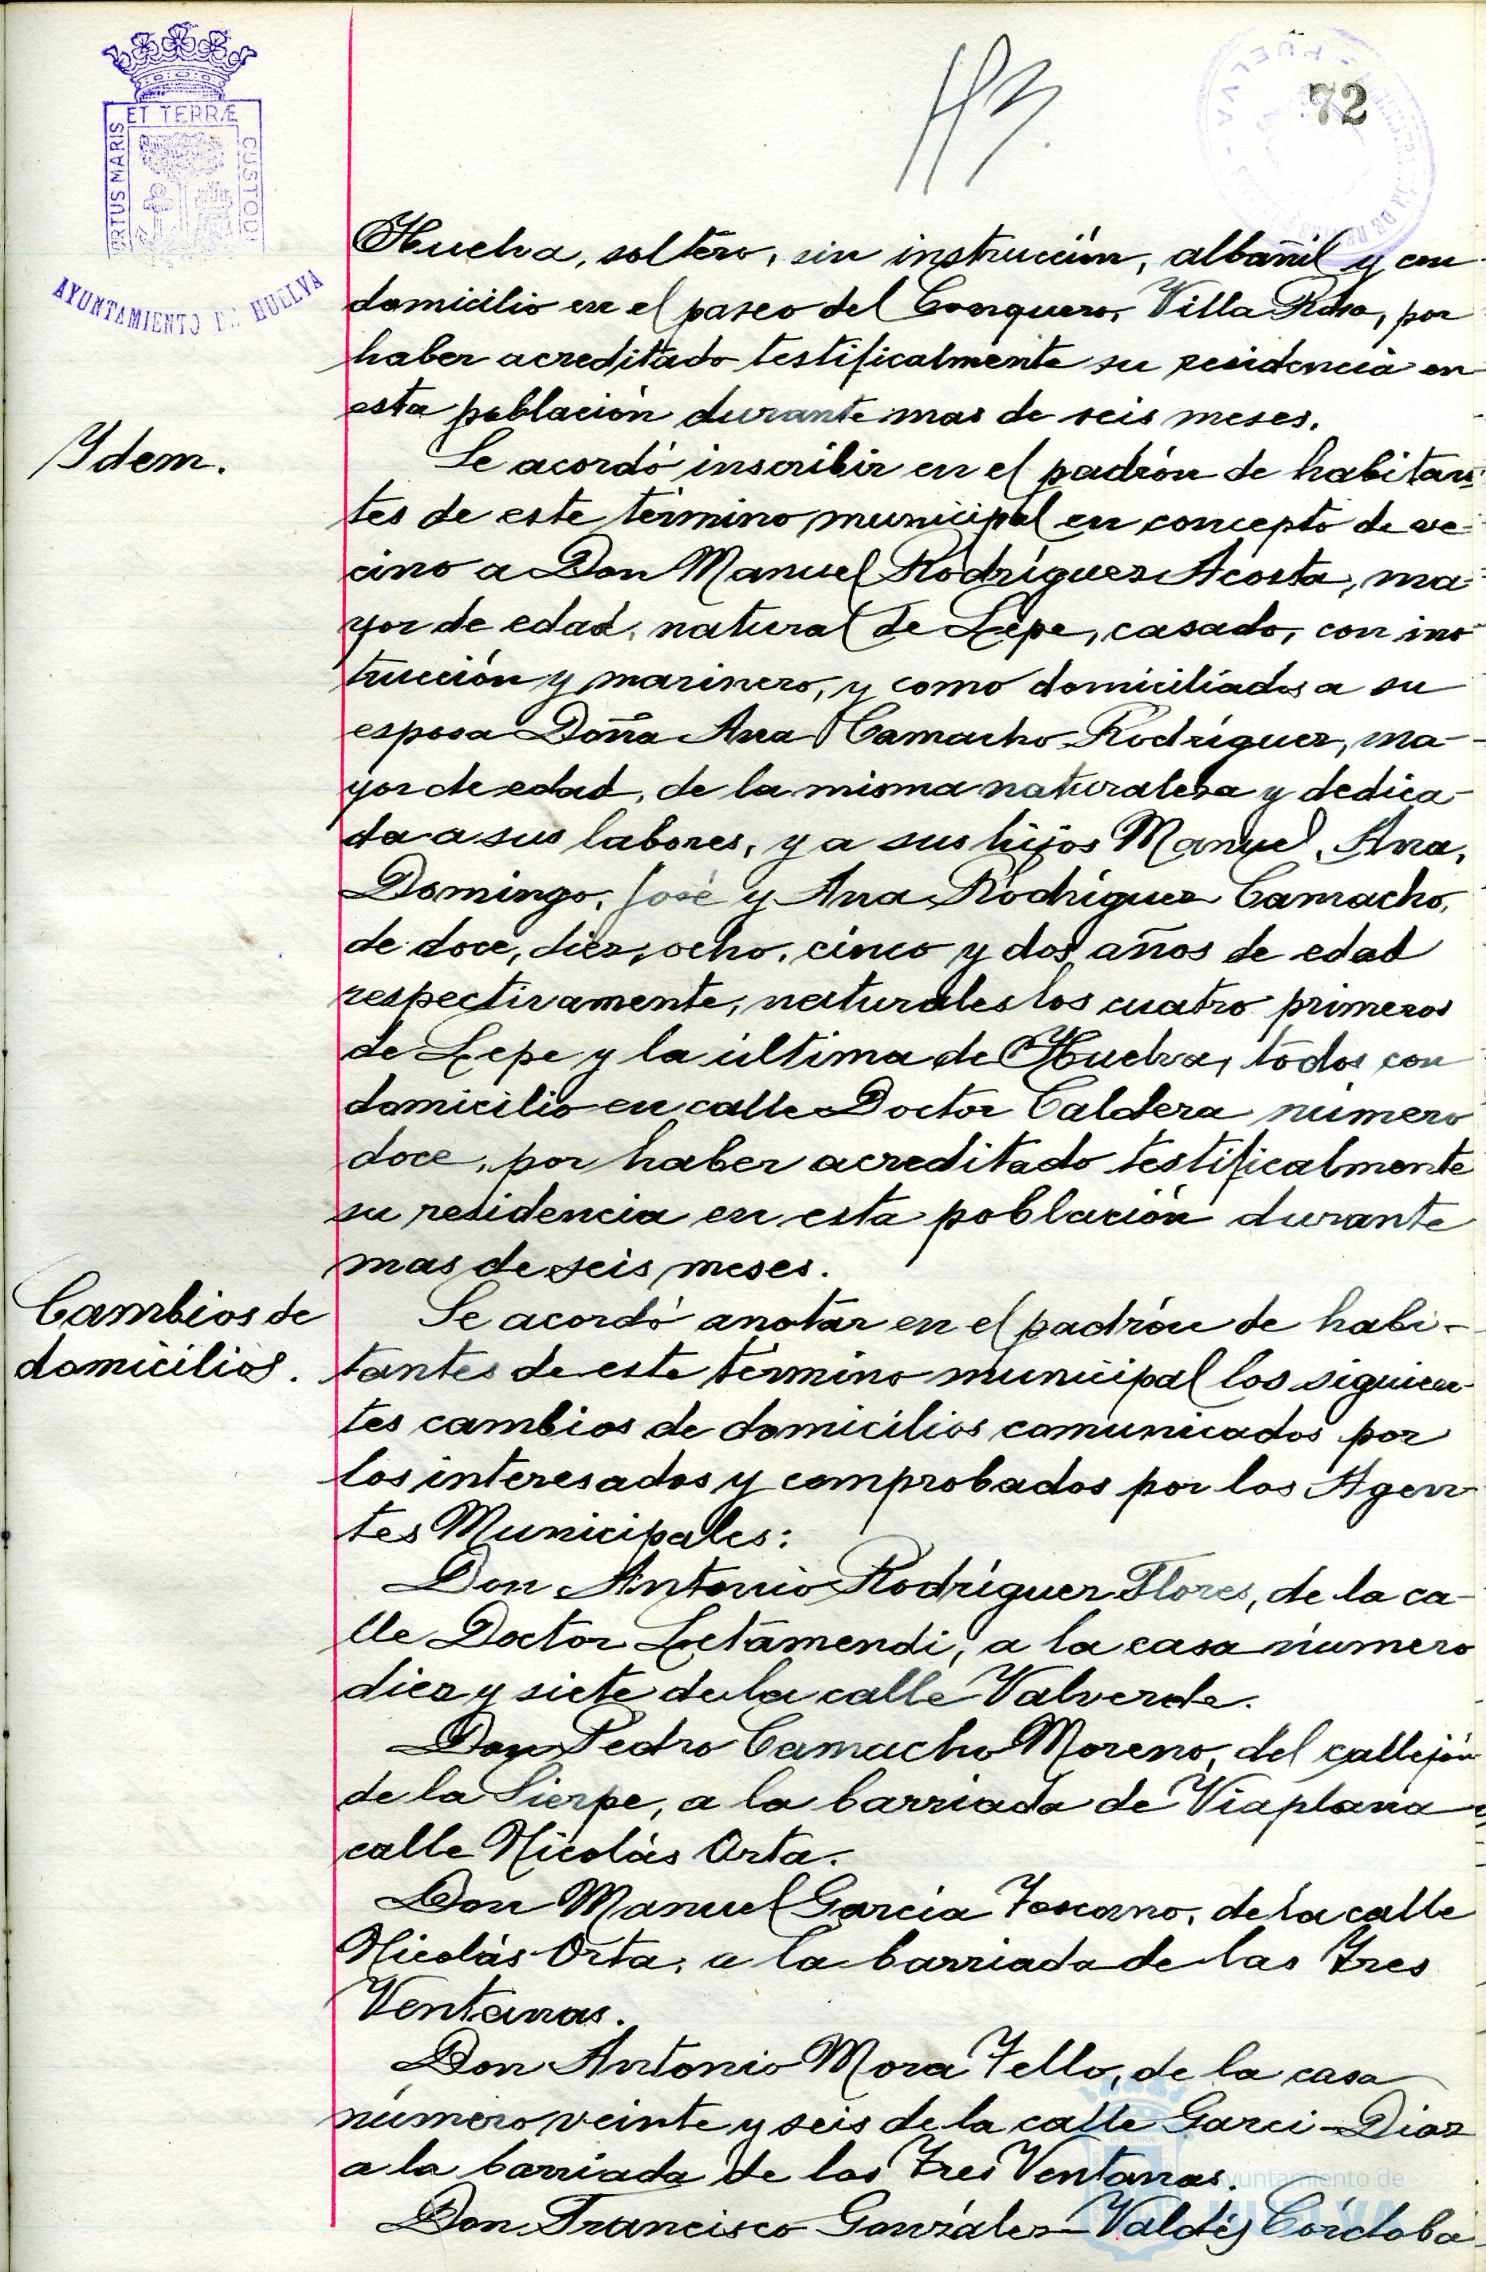 72
ET TERRÆ
PORTUS MARIS
CUSTODI
AYUNTAMIENTO DE HUELVA
Huelva, soltero, sin instrucción, albañil y con
domicilio en el paseo del Conquero, Villa Rosa, por
haber acreditado testificalmente su residencia en
esta población durante mas de seis meses.
Ydem.
Se acordó inscribir en el padrón de habitan-
tes de este término municipal en concepto de ve-
cino a Don Manuel Rodríguez Acosta, ma-
yor de edad, natural de Lepe, casado, con ins-
trucción y marinero, y como domiciliados a su
esposa Doña Ana Camacho Rodríguez, ma-
yor de edad, de la misma naturaleza y dedica-
da a sus labores, y a sus hijos Manuel, Ana,
Domingo, José y Ana Rodríguez Camacho,
de doce, diez, ocho, cinco y dos años de edad
respectivamente, naturales los cuatro primeros
de Lepe y la última de Huelva, todos con
domicilio en calle Doctor Caldera número
doce, por haber acreditado testificalmente
su residencia en esta población durante
mas de seis meses.
Cambios de
domicilios.
Se acordó anotar en el padrón de habi-
tantes de este término municipal los siguien-
tes cambios de domicilios comunicados por
los interesados y comprobados por los Agen-
tes Municipales:
Don Antonio Rodríguez Flores, de la ca-
lle Doctor Letamendi, a la casa número
diez y siete de la calle Valverde.
Don Pedro Camacho Moreno, del callejón
de la Sierpe, a la barriada de Viaplana,
calle Nicolás Orta.
Don Manuel García Toscano, de la calle
Nicolás Orta, a la barriada de las Tres
Ventanas.
Don Antonio Mora Tello, de la casa
número veinte y seis de la calle Garci-Diaz
a la barriada de las Tres Ventanas.
Don Francisco González-Valdés Córdoba
Ayuntamiento de
HUELVA